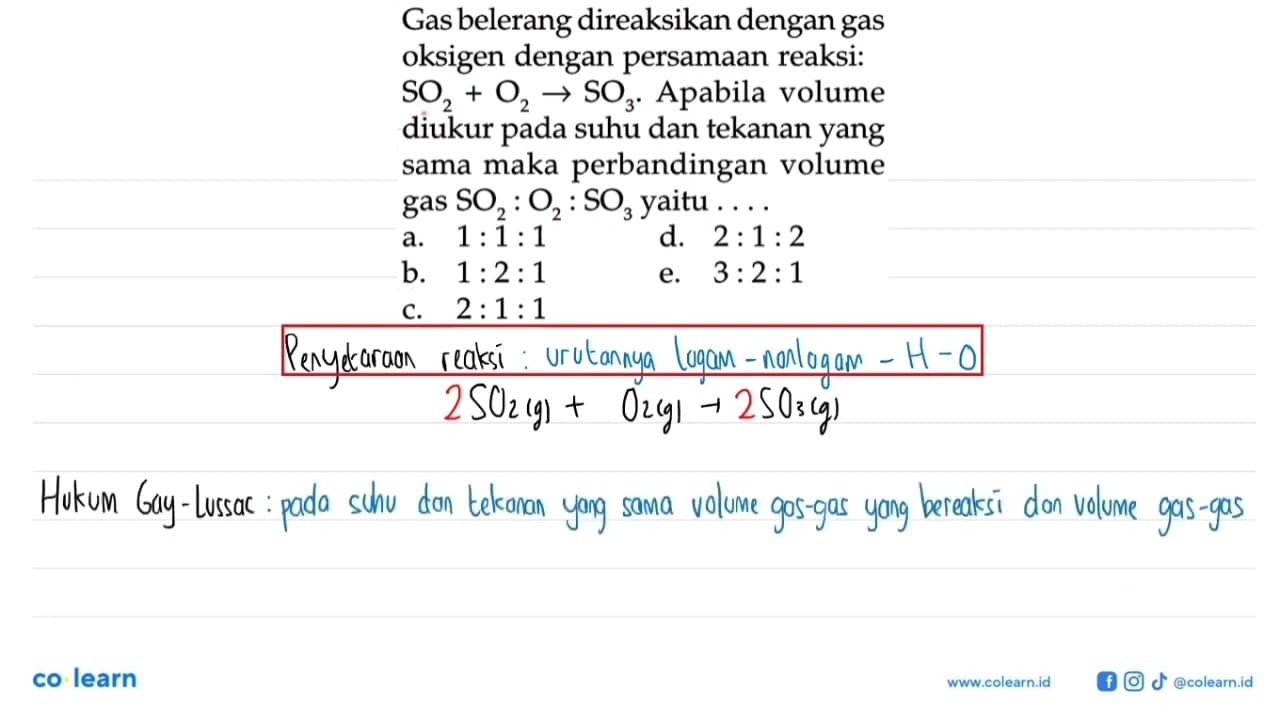 Gas belerang direaksikan dengan gas
oksigen dengan persamaan reaksi:
SO₂ + O₂ → SO₃. Apabila volume
diukur pada suhu dan tekanan yang
sama maka perbandingan volume
gas SO₂ : O₂ : SO₃ yaitu . . . .
a. 1 : 1 : 1 d. 2 : 1 : 2
b. 1 : 2 : 1 e. 3 : 2 : 1
c. 2 : 1 : 1
Penyetaraan reaksi : urutannya logam - nonlogam - H - O
2SO₂(g) + O₂(g) → 2SO₃(g)
Hukum Gay-Lussac : pada suhu dan tekanan yang sama volume gas-gas yang bereaksi dan volume gas-gas
co learn www.colearn.id @colearn.id